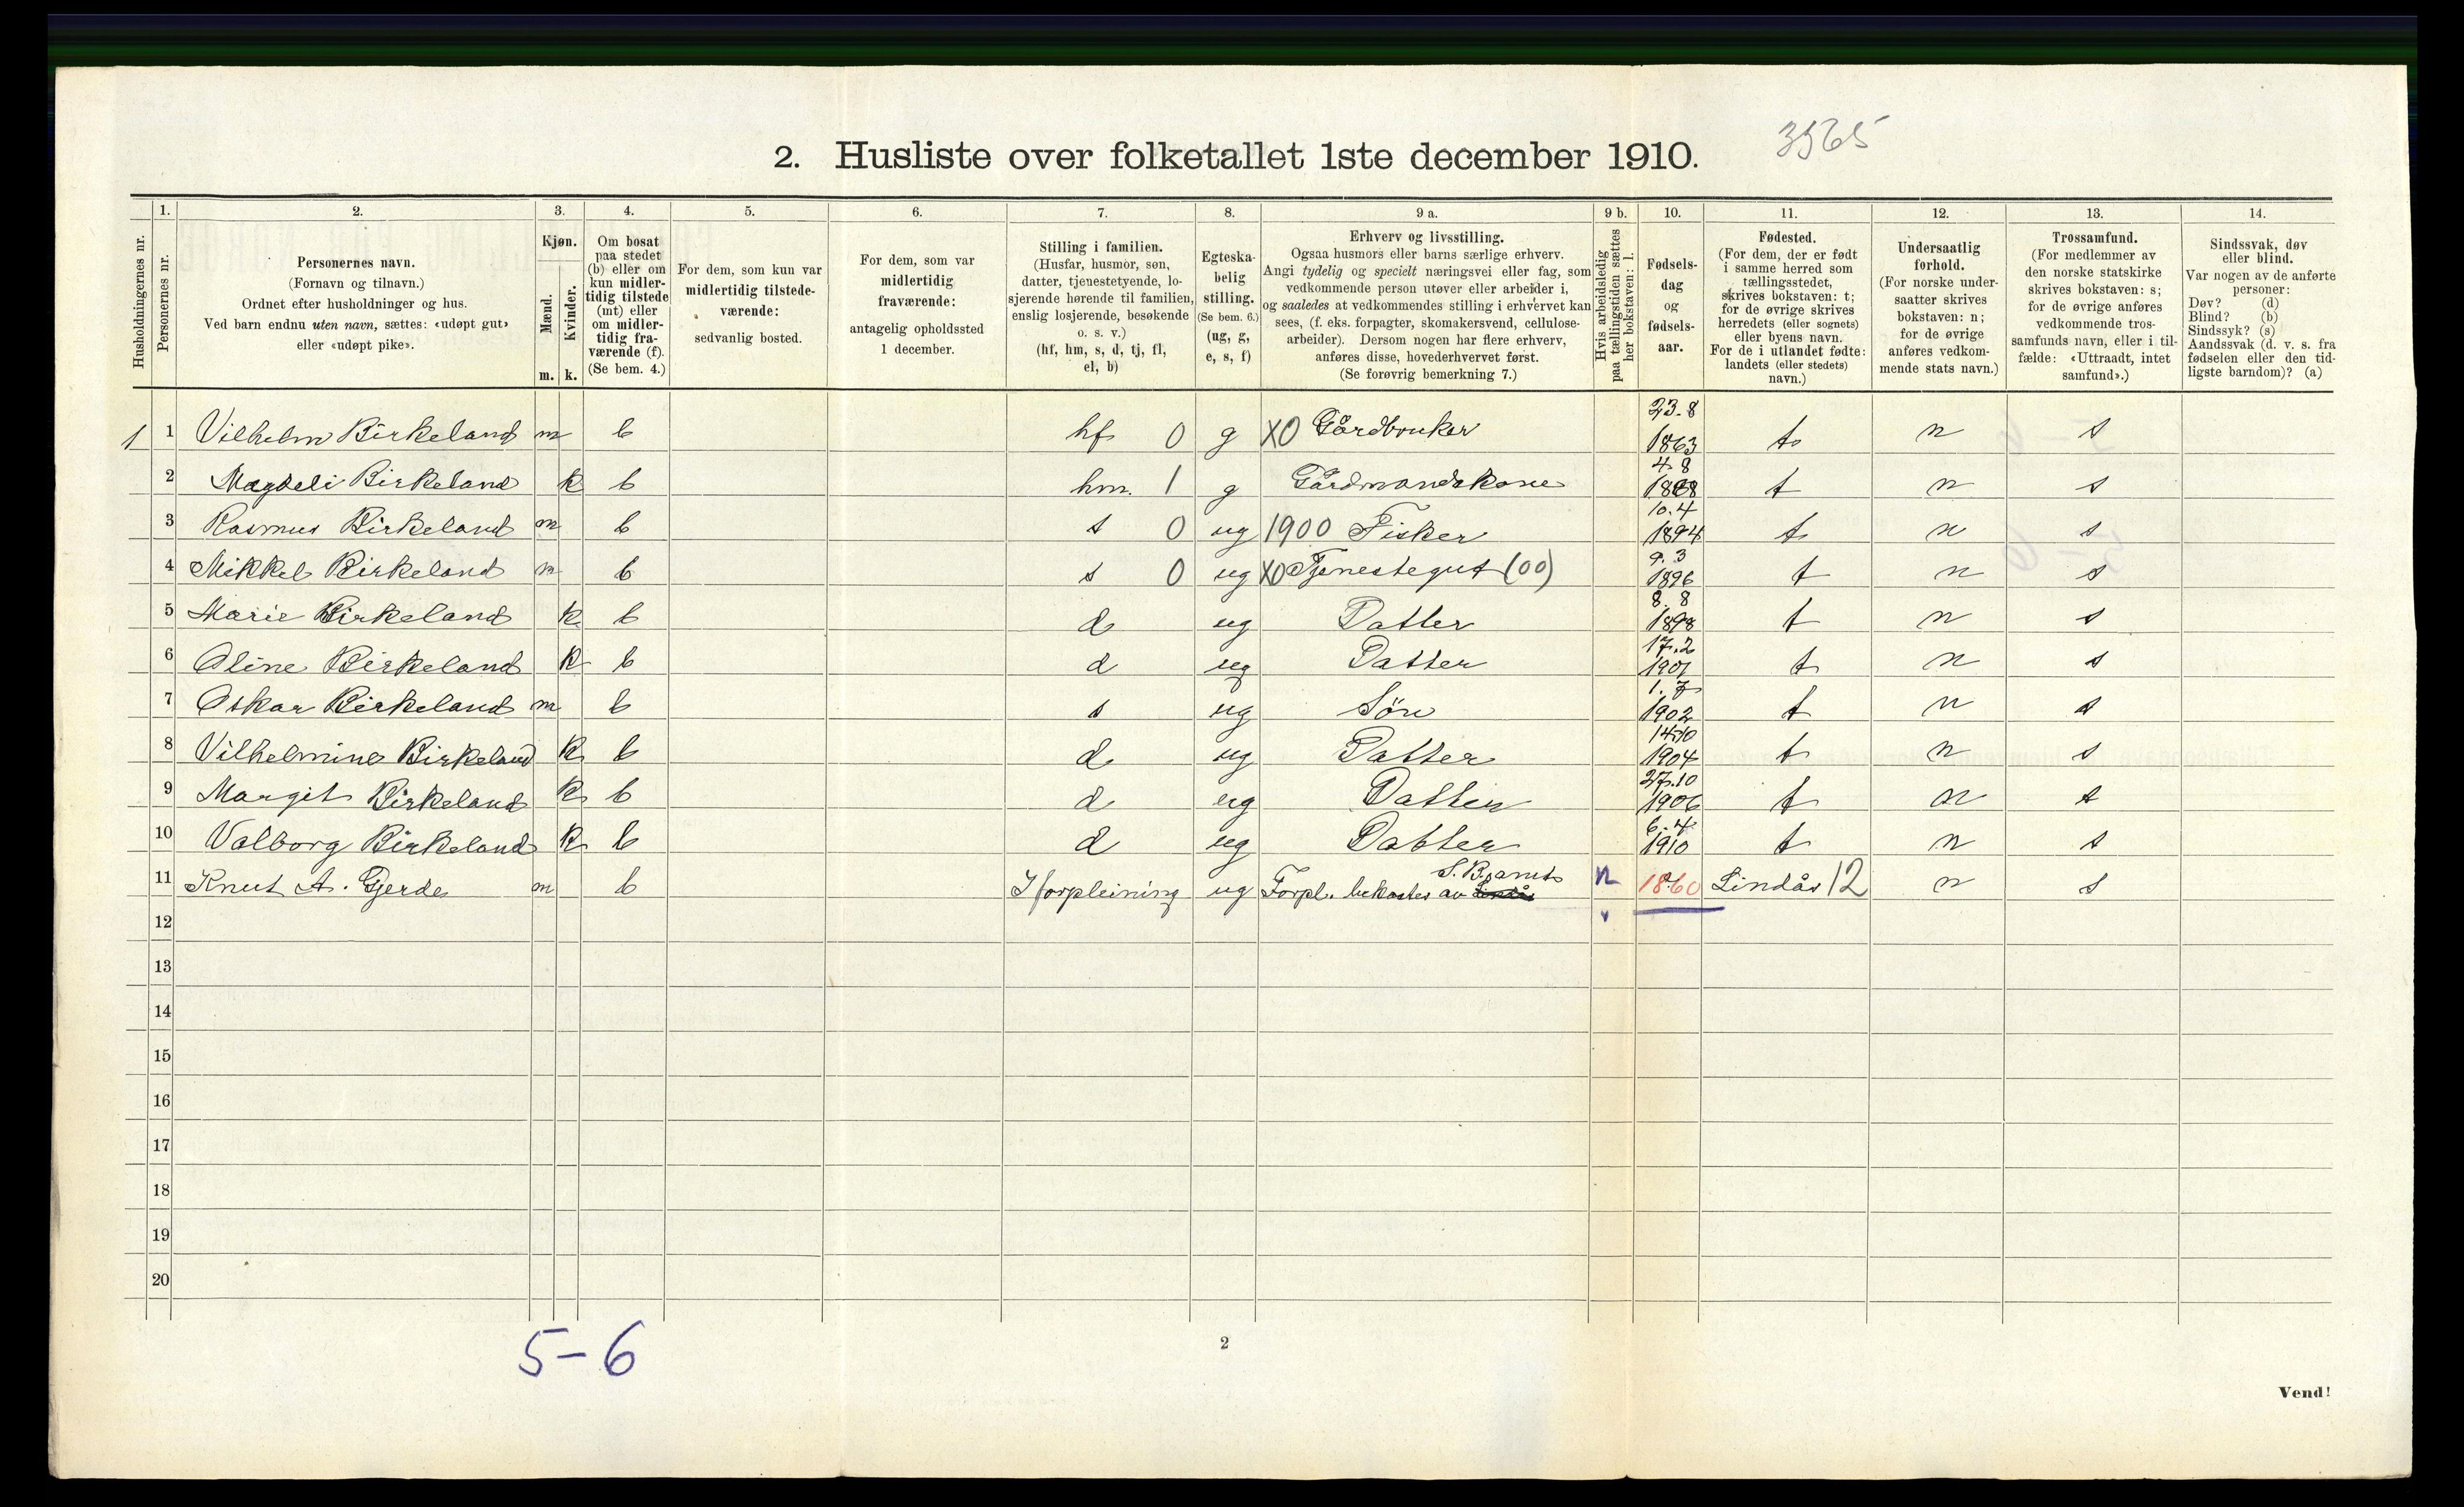 3965
2. Husliste over folketallet 1ste december 1910.
Husholdningernes nr.
1. Personernes nr.
2. Personernes navn.
(Fornavn og tilnavn.)
Ordnet efter husholdninger og hus.
Ved barn endnu uten navn, sættes: «udøpt gut»
eller «udøpt pike».
3. Kjøn.
Mænd. Kvinder.
m. k.
4. Om bosat
paa stedet
(b) eller om
kun midler-
tidig tilstede
(mt) eller
om midler-
tidig fra-
værende (f).
(Se bem. 4.)
5. For dem, som kun var
midlertidig tilstede-
værende:
sedvanlig bosted.
6. For dem, som var
midlertidig
fraværende:
antagelig opholdssted
1 december.
7. Stilling i familien.
(Husfar, husmor, søn,
datter, tjenestetyende, lo-
sjerende hørende til familien,
enslig losjerende, besøkende
o. s. v.)
(hf, hm, s, d, tj, fl,
el, b)
8. Egteska-
belig
stilling.
(Se bem. 6.)
(ug, g,
e, s, f)
9 a. Erhverv og livsstilling.
Ogsaa husmors eller barns særlige erhverv.
Angi tydelig og specielt næringsvei eller fag, som
vedkommende person utøver eller arbeider i,
og saaledes at vedkommendes stilling i erhvervet kan
sees, (f. eks. forpagter, skomakersvend, cellulose-
arbeider). Dersom nogen har flere erhverv,
anføres disse, hovederhvervet først.
(Se forøvrig bemerkning 7.)
9 b. Hvis arbeidsledig
paa tællingstiden sættes
her bokstaven: l.
10. Fødsels-
dag
og
fødsels-
aar.
11. Fødested.
(For dem, der er født
i samme herred som
tællingsstedet,
skrives bokstaven: t;
for de øvrige skrives
herredets (eller sognets)
eller byens navn.
For de i utlandet fødte:
landets (eller stedets)
navn.)
12. Undersaatlig
forhold.
(For norske under-
saatter skrives
bokstaven: n;
for de øvrige
anføres vedkom-
mende stats navn.)
13. Trossamfund.
(For medlemmer av
den norske statskirke
skrives bokstaven: s;
for de øvrige anføres
vedkommende tros-
samfunds navn, eller i til-
fælde: «Uttraadt, intet
samfund».)
14. Sindssvak, døv
eller blind.
Var nogen av de anførte
personer:
Døv? (d)
Blind? (b)
Sindssyk? (s)
Aandssvak (d. v. s. fra
fødselen eller den tid-
ligste barndom)? (a)
1 1 Vilhelm Birkeland m b hf 0 g XO Gårdbruker 23.8 1863 t n s
2 Magdeli Birkeland k b hm. 1 g Gårdmandskone 4.8 1868 t n s
3 Rasmus Birkeland m b s 0 ug 1900 Fisker 10.4 1894 t n s
4 Mikkel Birkeland m b s 0 ug XO Tjenestegut (00) 9.3 1896 t n s
5 Marie Birkeland k b d ug Datter 8.8 1898 t n s
6 Oline Birkeland k b d ug Datter 17.2 1901 t n s
7 Oskar Birkeland m b s ug Søn 1.7 1902 t n s
8 Vilhelmine Birkeland k b d ug Datter 14.10 1904 t n s
9 Margit Birkeland k b d ug Datter 27.10 1906 t n s
10 Valborg Birkeland k b d ug Datter 6.4 1910 t n s
11 Knut A. Gjerde m b I forpleining ug Forpl. bekostes av S.B. amt n 1860 Lindås 12 n s
12
13
14
15
16
17
18
19
20
5-6
2
Vend!